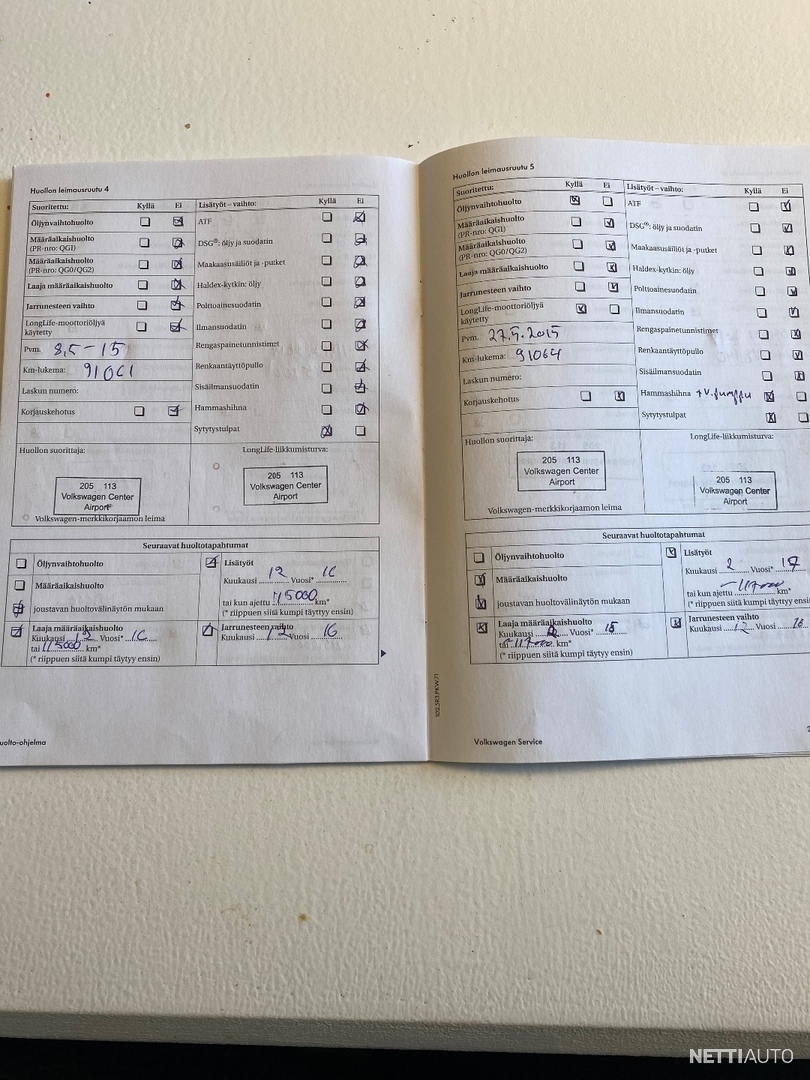 Huollon leimausruutu 4
Suoritettu: Kyllä Ei Lisätyöt – vaihto: Kyllä Ei
Öljynvaihtohuolto
ATF
Määräaikaishuolto
(PR-nro: QG1)
DSG®: öljy ja suodatin
Määräaikaishuolto
(PR-nro: QG0/QG2)
Maakaasusäiliöt ja -putket
Laaja määräaikaishuolto
Haldex-kytkin: öljy
Jarrunesteen vaihto
Polttoainesuodatin
LongLife-moottoriöljyä
käytetty
Ilmansuodatin
Pvm. 8,5-15
Rengaspainetunnistimet
Km-lukema: 91061
Renkaantäyttöpullo
Laskun numero:
Sisäilmansuodatin
Korjauskehotus
Hammashihna
Sytytystulpat
Huollon suorittaja:
LongLife-liikkumisturva:
205 113
Volkswagen Center
Airport
205 113
Volkswagen Center
Airport
Volkswagen-merkkikorjaamon leima
Seuraavat huoltotapahtumat
Öljynvaihtohuolto
Lisätyöt
Kuukausi 12 Vuosi* 16
Määräaikaishuolto
tai kun ajettu 115000 km*
joustavan huoltovälinäytön mukaan
(* riippuen siitä kumpi täytyy ensin)
Laaja määräaikaishuolto
Kuukausi 12 Vuosi* 16
tai 115000 km*
(* riippuen siitä kumpi täytyy ensin)
Jarrunesteen vaihto
Kuukausi 12 Vuosi 16
uolto-ohjelma
Huollon leimausruutu 5
Suoritettu: Kyllä Ei Lisätyöt – vaihto: Kyllä Ei
Öljynvaihtohuolto
ATF
Määräaikaishuolto
(PR-nro: QG1)
DSG®: öljy ja suodatin
Määräaikaishuolto
(PR-nro: QG0/QG2)
Maakaasusäiliöt ja -putket
Laaja määräaikaishuolto
Haldex-kytkin: öljy
Jarrunesteen vaihto
Polttoainesuodatin
LongLife-moottoriöljyä
käytetty
Ilmansuodatin
Pvm. 27.5.2015
Rengaspainetunnistimet
Km-lukema: 91064
Renkaantäyttöpullo
Laskun numero:
Sisäilmansuodatin
Korjauskehotus
Hammashihna +V.pumppu
Sytytystulpat
Huollon suorittaja:
LongLife-liikkumisturva:
205 113
Volkswagen Center
Airport
205 113
Volkswagen Center
Airport
Volkswagen-merkkikorjaamon leima
Seuraavat huoltotapahtumat
Öljynvaihtohuolto
Lisätyöt
Kuukausi 2 Vuosi* 17
Määräaikaishuolto
tai kun ajettu 117000 km*
joustavan huoltovälinäytön mukaan
(* riippuen siitä kumpi täytyy ensin)
Laaja määräaikaishuolto
Kuukausi Vuosi*
tai 117000 km*
(* riippuen siitä kumpi täytyy ensin)
Jarrunesteen vaihto
Kuukausi 12 Vuosi
Volkswagen Service
NETTIAUTO